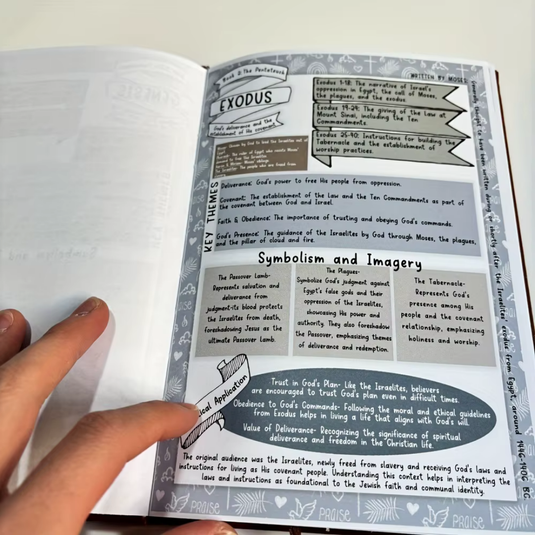 Book 2: The Pentateuch
EXODUS
God's deliverance and the
establishment of His covenant.
WRITTEN BY MOSES
Exodus 1-18: The narrative of Israel's
oppression in Egypt, the call of Moses,
the plagues, and the exodus
Exodus 19-24: The giving of the Law at
Mount Sinai, including the Ten
Commandments.
Exodus 25-40: Instructions for building the
Tabernacle and the establishment of
worship practices.
KEY THEMES
Deliverance: God's power to free His people from oppression.
Covenant: The establishment of the Law and the Ten Commandments as part of
the covenant between God and Israel.
Faith & Obedience: The importance of trusting and obeying God's commands.
God's Presence: The guidance of the Israelites by God through Moses, the plagues,
and the pillar of cloud and fire.
Symbolism and Imagery
The Passover Lamb-
Represents salvation and
deliverance from
judgment-its blood protects
the Israelites from death,
foreshadowing Jesus as the
ultimate Passover Lamb.
The Plagues-
Symbolize God's judgment against
Egypt's false gods and their
oppression of the Israelites,
showcasing His power and
authority. They also foreshadow
the Passover, emphasizing themes
of deliverance and redemption.
The Tabernacle-
Represents God's
presence among His
people and the covenant
relationship, emphasizing
holiness and worship.
ical Application
Trust in God's Plan- Like the Israelites, believers
are encouraged to trust God's plan even in difficult times.
Obedience to God's Commands- Following the moral and ethical guidelines
from Exodus helps in living a life that aligns with God's will.
Value of Deliverance- Recognizing the significance of spiritual
deliverance and freedom in the Christian life.
The original audience was the Israelites, newly freed from slavery and receiving God's laws and
instructions for living as His covenant people. Understanding this context helps in interpreting the
laws and instructions as foundational to the Jewish faith and communal identity.
to have been written during or shortly after the Israelites' exodus from Egypt, around 1446-1406 BC
PRAISE
PRAISE
PRAISE